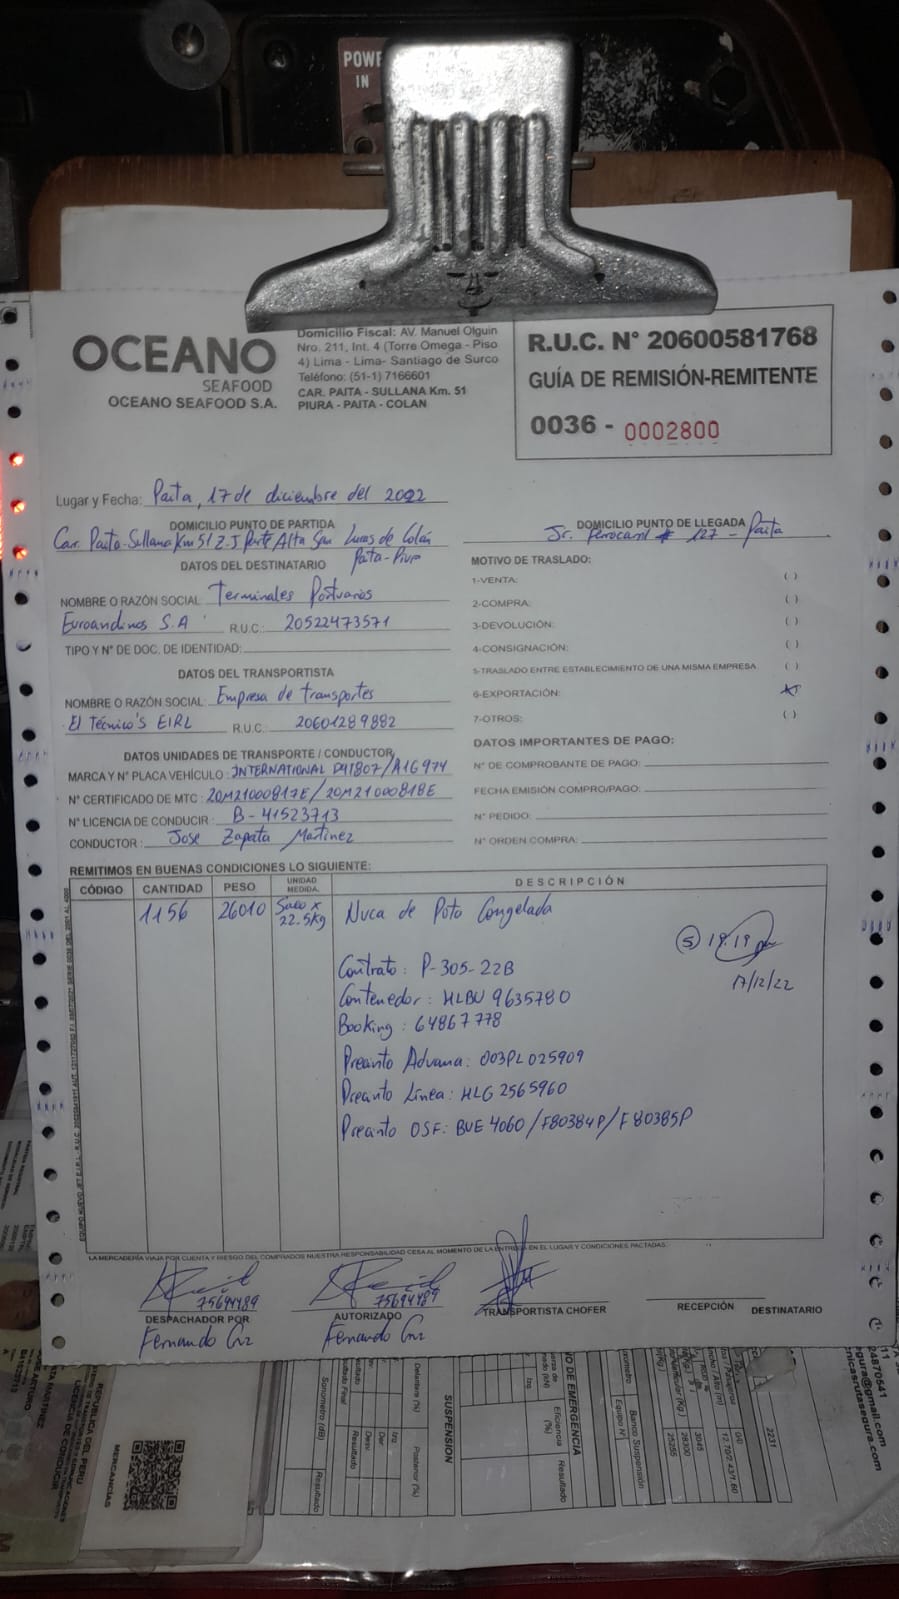 POWE
IN
OCEANO
SEAFOOD
OCEANO SEAFOOD S.A.
Domicilio Fiscal: AV. Manuel Olguin
Nro. 211, Int. 4 (Torre Omega - Piso
4) Lima - Lima- Santiago de Surco
Teléfono: (51-1) 7166601
CAR. PAITA - SULLANA Km. 51
PIURA - PAITA - COLAN
R.U.C. N° 20600581768
GUÍA DE REMISIÓN-REMITENTE
0036 - 0002800
Lugar y Fecha: Paita, 17 de diciembre del 2022
DOMICILIO PUNTO DE PARTIDA
Car. Paita-Sullana Km 51 Z.I Parte Alta San Lucas de Colán
Paita-Piura
DOMICILIO PUNTO DE LLEGADA
Jr. Ferrocarril # 127 - Paita
DATOS DEL DESTINATARIO
NOMBRE O RAZÓN SOCIAL Terminales Portuarios
Euroandinos S.A R.U.C.: 20522473571
TIPO Y N° DE DOC. DE IDENTIDAD:
DATOS DEL TRANSPORTISTA
NOMBRE O RAZÓN SOCIAL: Empresa de transportes
El Técnico's EIRL R.U.C.: 20601289882
DATOS UNIDADES DE TRANSPORTE / CONDUCTOR
MARCA Y N° PLACA VEHÍCULO: INTERNATIONAL D41807/A16974
N° CERTIFICADO DE MTC: 20M21000817E/20M21000818E
N° LICENCIA DE CONDUCIR: B-41523713
CONDUCTOR: Jose Zapata Martinez
MOTIVO DE TRASLADO:
1-VENTA: ( )
2-COMPRA: ( )
3-DEVOLUCIÓN: ( )
4-CONSIGNACIÓN: ( )
5-TRASLADO ENTRE ESTABLECIMIENTO DE UNA MISMA EMPRESA ( )
6-EXPORTACIÓN: (X)
7-OTROS: ( )
DATOS IMPORTANTES DE PAGO:
N° DE COMPROBANTE DE PAGO:
FECHA EMISIÓN COMPRO/PAGO:
N° PEDIDO:
N° ORDEN COMPRA:
REMITIMOS EN BUENAS CONDICIONES LO SIGUIENTE:
CÓDIGO CANTIDAD PESO UNIDAD MEDIDA. DESCRIPCIÓN
1156 26010 Saco x 22.5Kg Nuca de Pota Congelada
Contrato: P-305-22B
Contenedor: HLBU 9635780
Booking: 64867778
Precinto Aduana: 003PL025909
Precinto Línea: HLG 2565960
Precinto OSF: BUE 4060/F80384P/F80385P
S 19:19 pm
17/12/22
LA MERCADERÍA VIAJA POR CUENTA Y RIESGO DEL COMPRADOR NUESTRA RESPONSABILIDAD CESA AL MOMENTO DE LA ENTREGA EN EL LUGAR Y CONDICIONES PACTADAS.
75694489
DESPACHADOR POR
Fernando Cruz
75694489
AUTORIZADO
Fernando Cruz
TRANSPORTISTA CHOFER
RECEPCIÓN DESTINATARIO
REPUBLICA DEL PERU
LICENCIA DE CONDUCIR
MERCANCIAS
SUSPENSION
Sonometro (dB)
Resultado
Resultado Final
Delantera (%)
Posterior (%)
Izq.
Der.
Desv.
Resultado
O DE EMERGENCIA
Eficiencia (%)
Resultado
Banco Suspensión
Equipo N°
2231
24870541